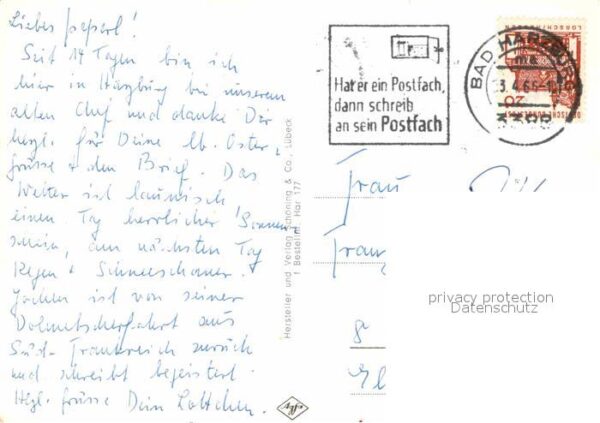 Liebes peperl!
Seit 14 Tagen bin ich
hier in Harzburg bei unserem
alten Chef und danke Dir
herzl. für Deine lb. Oster,
grüsse + den Brief. Das
Wetter ist launisch
einen Tag herrlicher Sonnen,
schein, am nächsten Tag
Regen + Schneeschauer.
Jochen ist von seiner
Dolmetscherfahrt aus
Süd-Frankreich zurück
und schreibt begeistert.
Herzl. grüsse Dein Lottchen.
Hersteller und Verlag Schöning & Co., Lübeck
1 Bestellnr. Har 177
Hat er ein Postfach,
dann schreib
an sein Postfach
BAD HARZBURG
DEUTSCHE BUNDESPOST
20
Frau
privacy protection
Datenschutz